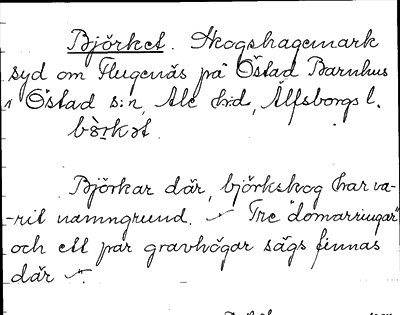 Björket. Skogshagemark
syd om Flugenäs på Östad Barnhus
i Östad s:n, Ale h:d, Älfsborgs l.
bö̀rkət.
Björkar där, björkskog har va-
-rit namngrund. Tre "domarringar"
och ett par gravhögar sägs finnas
där